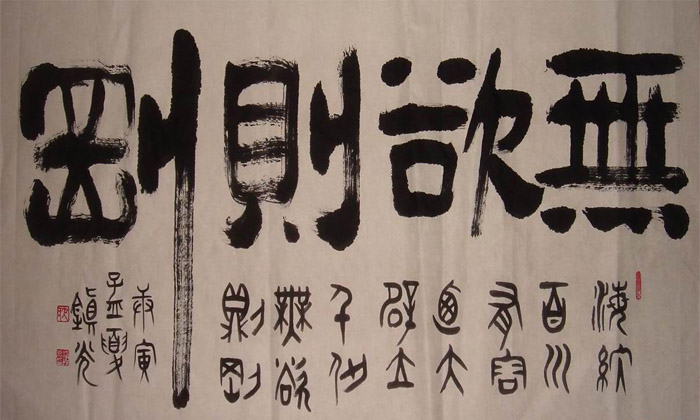 無欲則剛
海納
百川
有容
迺大
壁立
千仞
無欲
則剛
庚寅
孟夏
鎮光